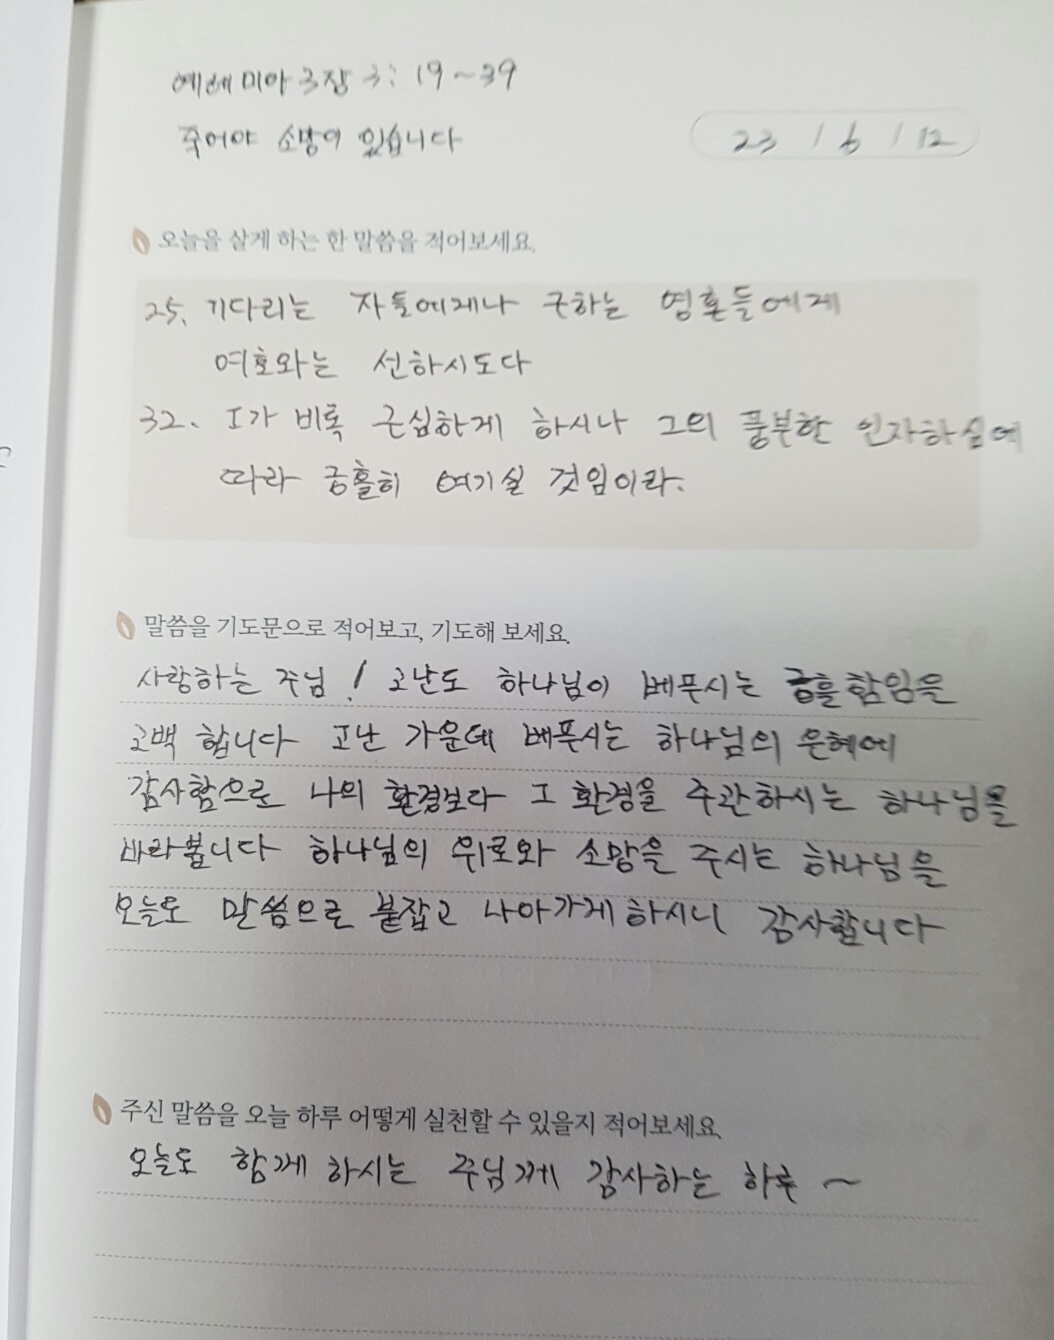 예레미아 3장 3: 19~39
죽어야 소망이 있습니다
23 / 6 / 12
오늘을 살게 하는 한 말씀을 적어보세요.
25. 기다리는 자들에게나 구하는 영혼들에게
여호와는 선하시도다
32. I가 비록 근심하게 하시나 그의 풍부한 인자하심에
따라 긍휼히 여기실 것임이라.
말씀을 기도문으로 적어보고, 기도해 보세요.
사랑하는 주님! 고난도 하나님이 베푸시는 긍휼함임을
고백 합니다 고난 가운데 베푸시는 하나님의 은혜에
감사함으로 나의 환경보다 그 환경을 주관하시는 하나님을
바라봅니다 하나님의 위로와 소망을 주시는 하나님을
오늘도 말씀으로 붙잡고 나아가게 하시니 감사합니다
주신 말씀을 오늘 하루 어떻게 실천할 수 있을지 적어보세요.
오늘도 함께 하시는 주님께 감사하는 하루 ~